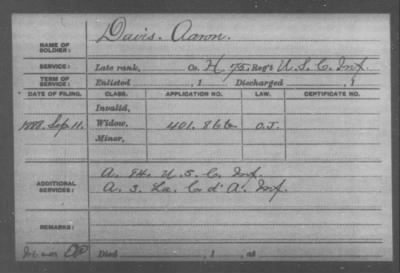 NAME OF SOLDIER: Davis, Aaron.
SERVICE: Late rank, Co. H, 75 Reg't U.S.C. Inf.
TERM OF SERVICE: Enlisted , 1 Discharged , 1
DATE OF FILING. CLASS. APPLICATION NO. LAW. CERTIFICATE NO.
Invalid,
Sep. 11. Widow, 401.866 O.J.
Minor,
ADDITIONAL SERVICES: A. 84. U.S.C. Inf.
A. 3. La. C. d' A. Inf.
REMARKS:
Died , 1 , at